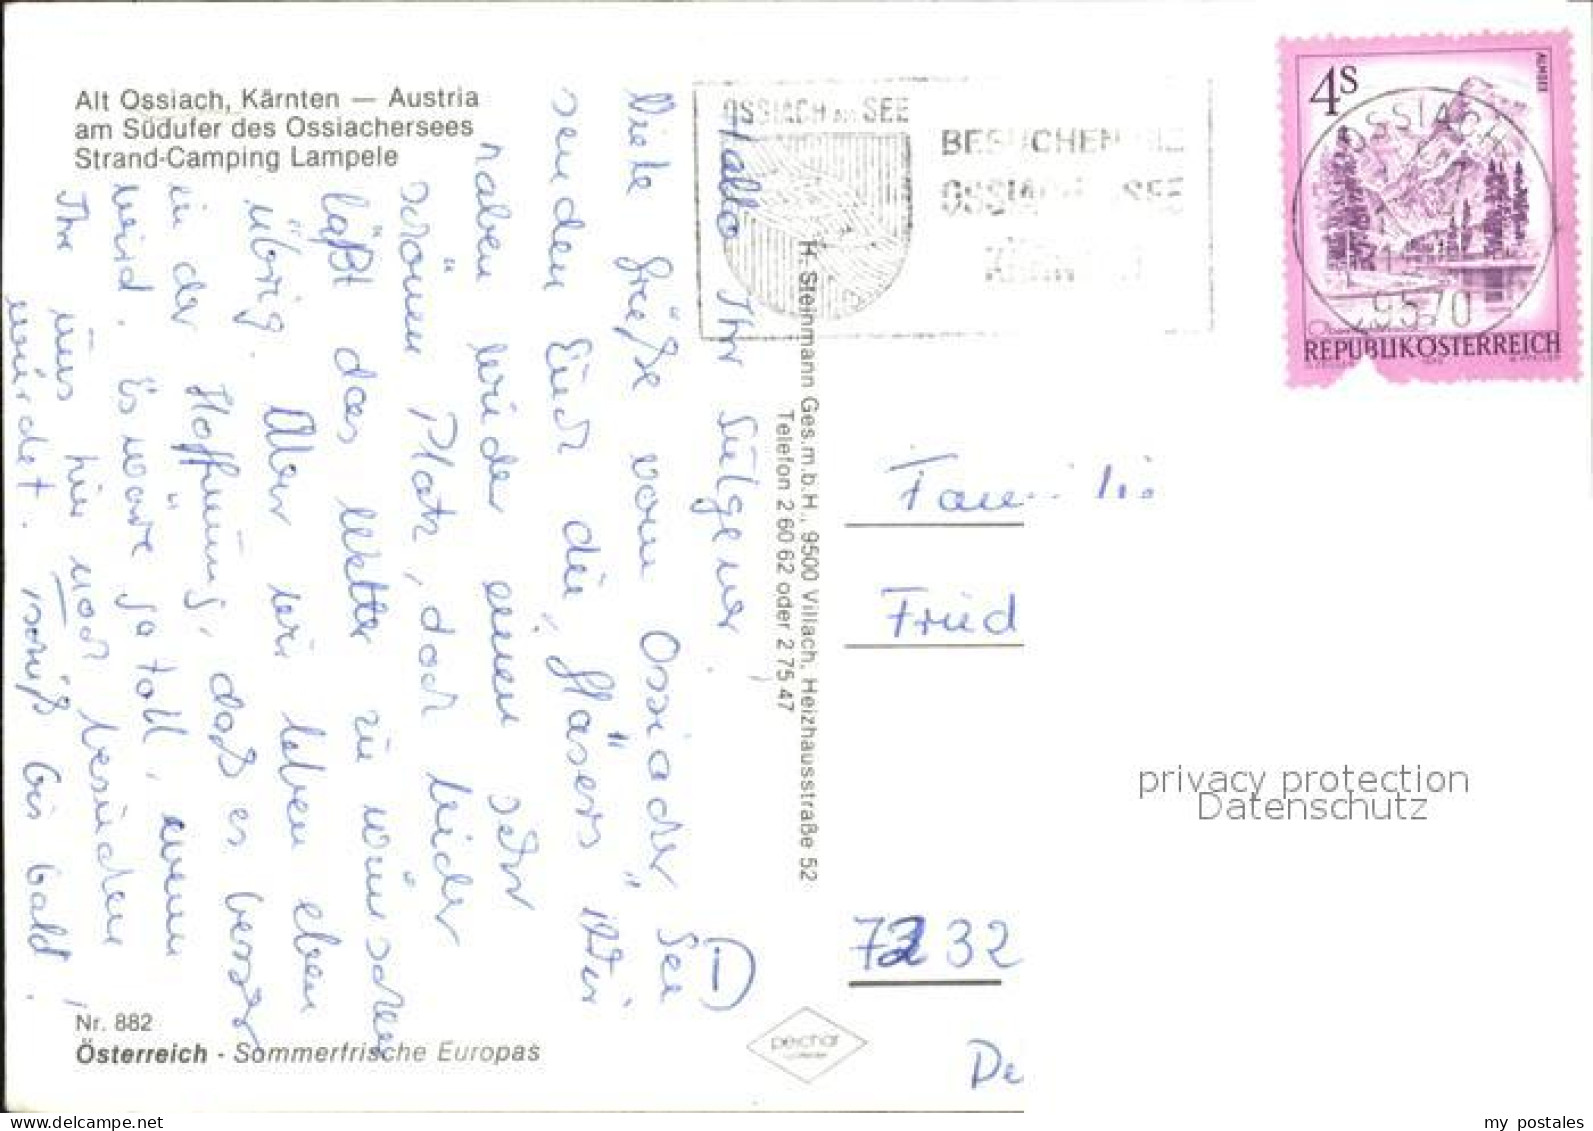 Alt Ossiach, Kärnten — Austria
am Südufer des Ossiachersees
Strand-Camping Lampele
OSSIACH am SEE
BESUCHEN SIE
OSSIACH SEE
4S
ALMSEE
OSSIACH
9570
REPUBLIK ÖSTERREICH
Hallo Ihr
Viele Grüße vom Ossiacher See
senden Euch die "Gläsers" Wir
haben wieder einen sehr
schönen Platz, doch leider
läßt das Wetter zu wünschen
übrig. Aber wir leben eben
in der Hoffnung, daß es besser
wird. Es wäre ja toll, wenn
Ihr uns hier noch besuchen
würdet. Tschüß bis bald.
H. Steinmann Ges.m.b.H., 9500 Villach, Heizhausstraße 52
Telefon 2 60 62 oder 2 75 47
Famili
Fried
7232
De
privacy protection
Datenschutz
Nr. 882
Österreich - Sommerfrische Europas
pechar
delcampe.net
my_postales